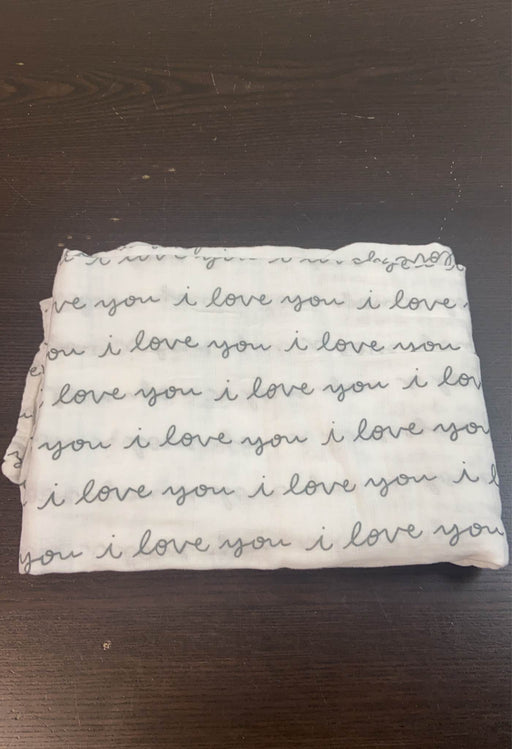 ve you i love you i love
ou i love you i love you
love you i love you i lov
you i love you i love you
i love you i love you i l
you i love you i love you